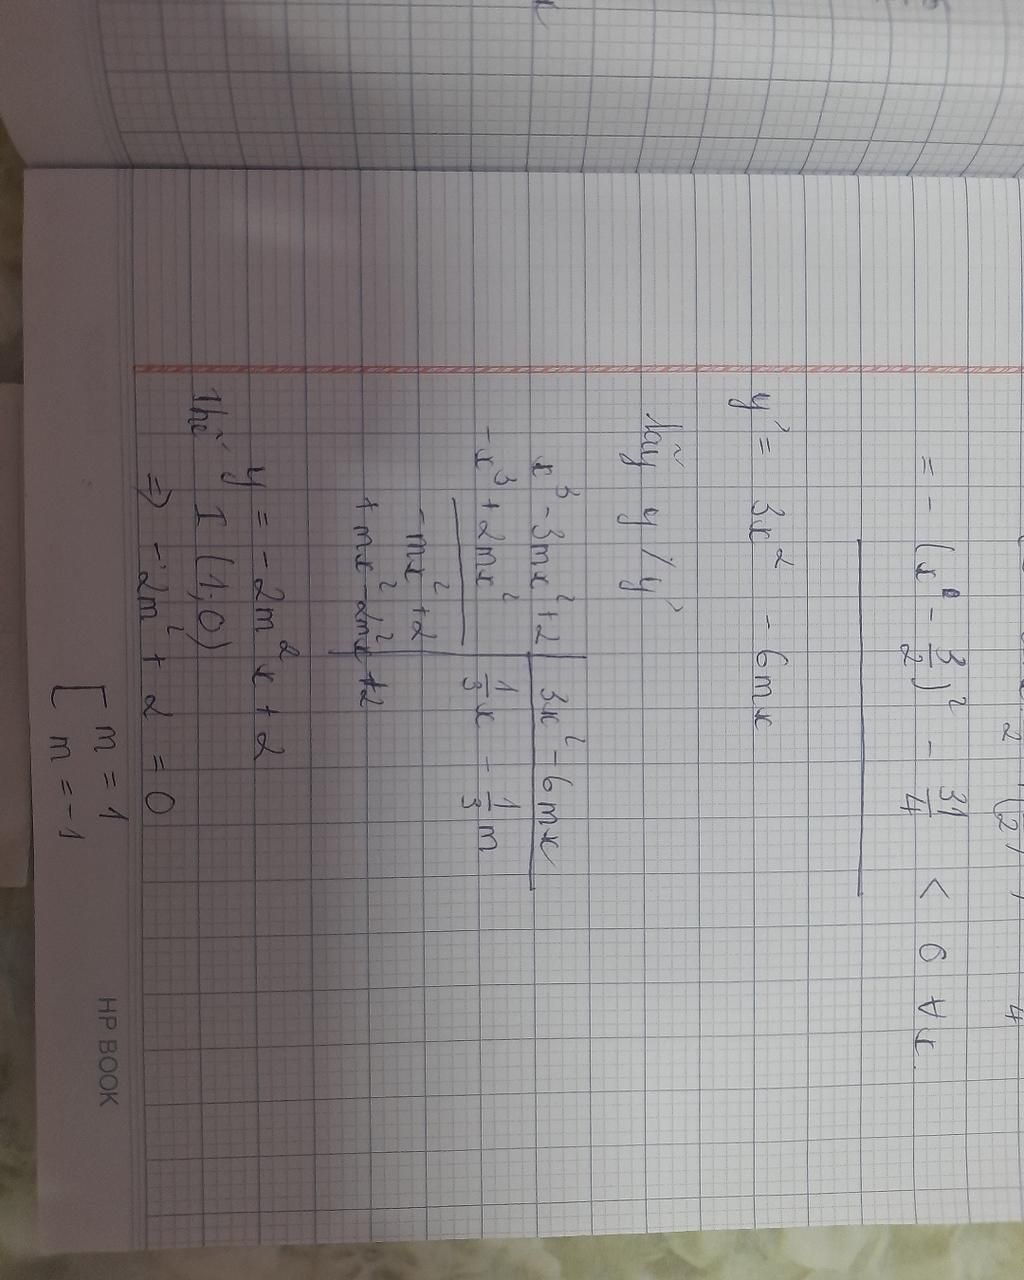 = - (x² - 3/2)² - 31/4 < 0 ∀ x
y' = 3x² - 6mx
lấy y / y'
x³ - 3mx² + 2 | 3x² - 6mx
-x³ + 2mx² | 1/3 x - 1/3 m
-mx² + 2
+mx² - 2m²x + 2
y = -2m²x + 2
Thế I (1,0)
⇒ -2m² + 2 = 0
[ m = 1
m = -1
HP BOOK